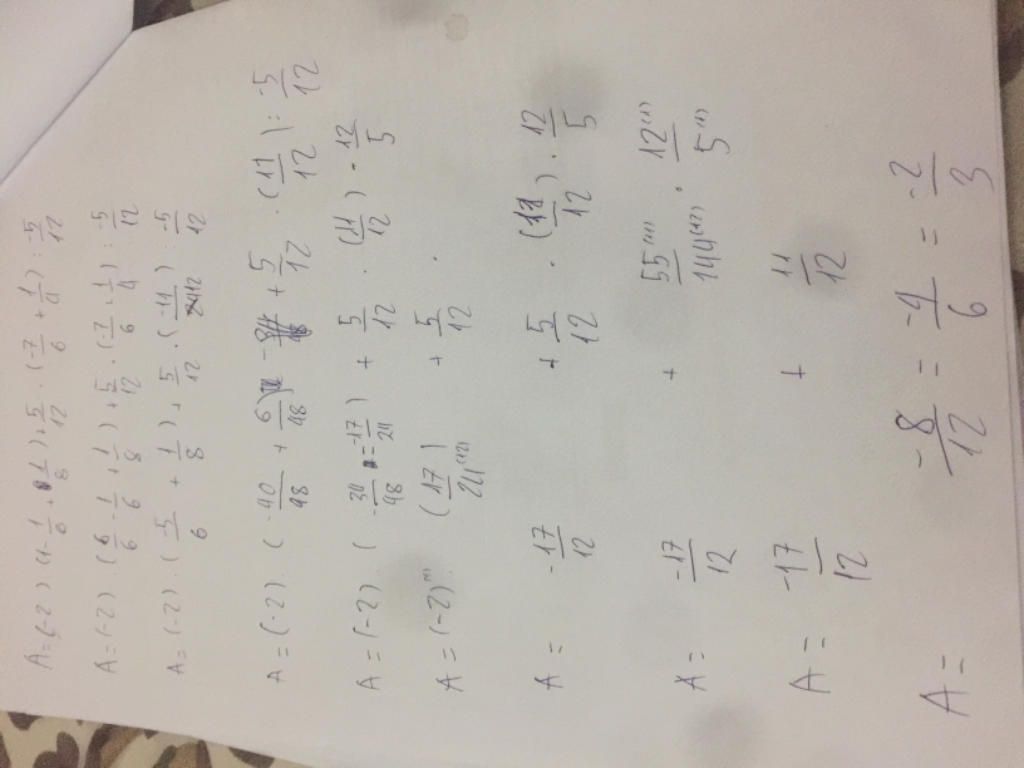 A = (-2) (1 - 1/6 + 1/8) + 5/12 · (-7/6 + 1/4) : -5/12
A = (-2) · (6/6 - 1/6 + 1/8) + 5/12 · (-7/6 + 1/4) : -5/12
A = (-2) · (-5/6 + 1/8) + 5/12 · (-11/12) : -5/12
A = (-2) · (-40/48 + 6/48) + 5/12 · (11/12) : -5/12
A = (-2) (-34/48 = -17/24) + 5/12 · (11/12) · 12/5
A = (-2) · (17/24) + 5/12 ·
A = -17/12 + 5/12 · (11/12) · 12/5
A = -17/12 + 55/144 · 12/5
A = -17/12 + 11/12
A = -8/12 = -4/6 = -2/3